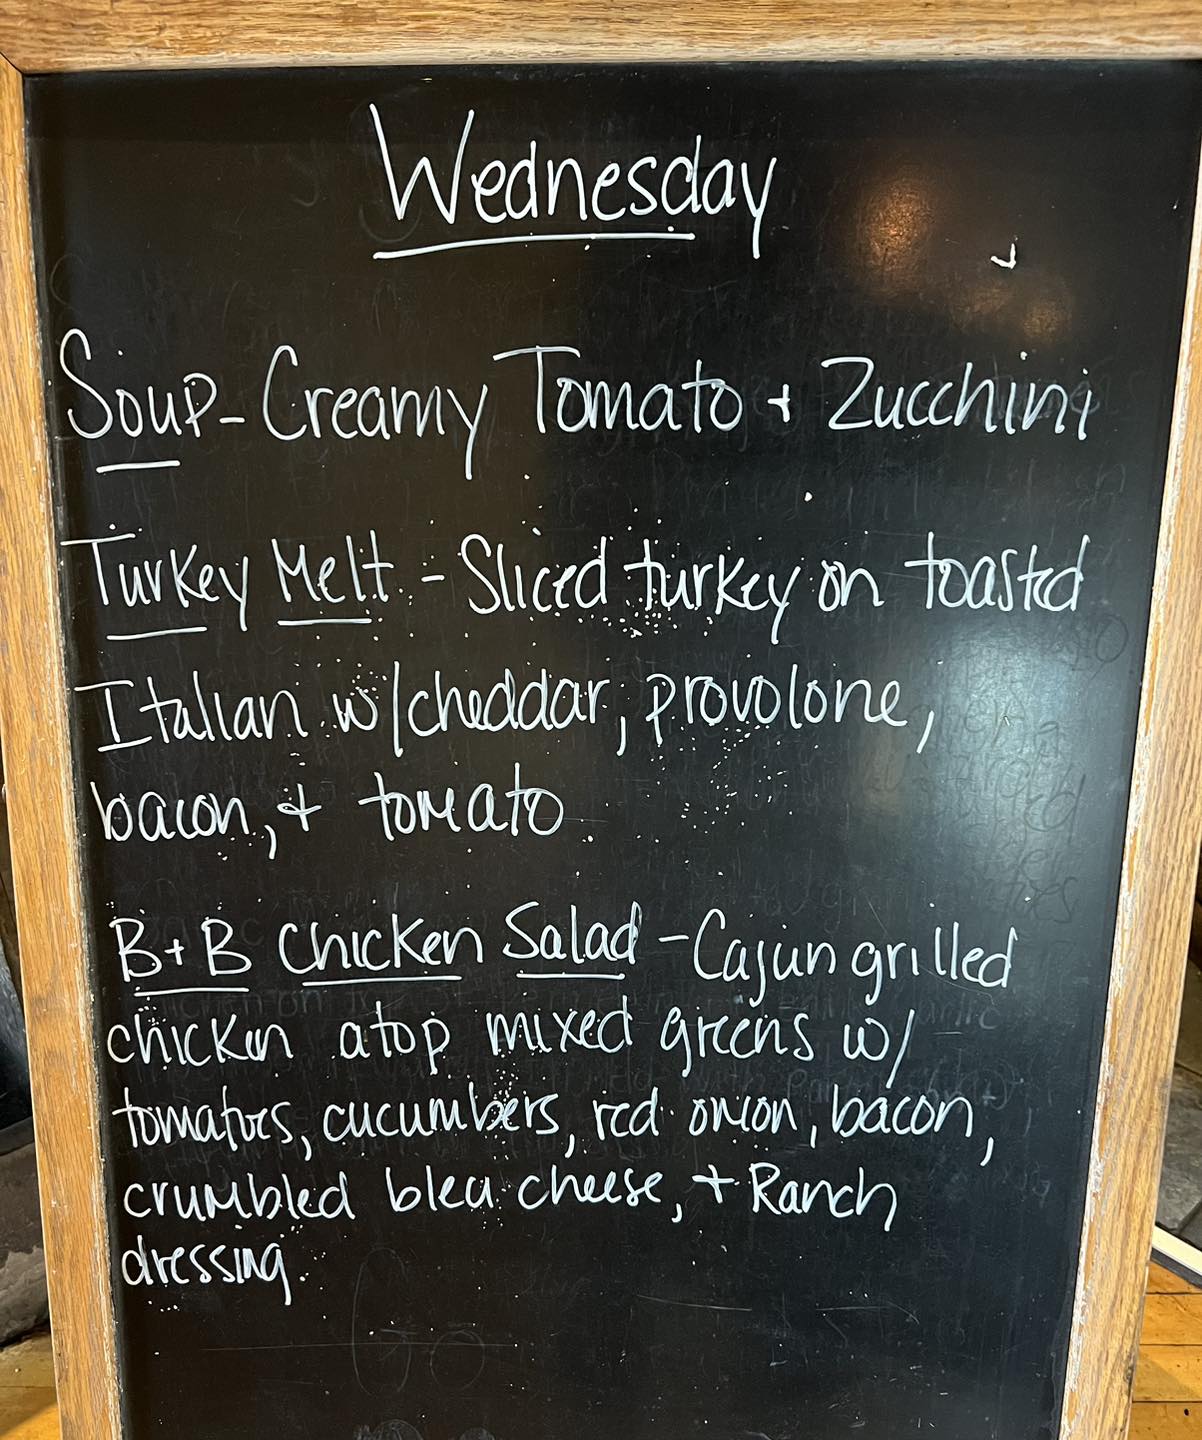 Wednesday
Soup - Creamy Tomato + Zucchini
Turkey Melt - Sliced turkey on toasted
Italian w/cheddar, provolone,
bacon, + tomato
B+B Chicken Salad - Cajun grilled
chicken atop mixed greens w/
tomatoes, cucumbers, red onion, bacon,
crumbled bleu cheese, + Ranch
dressing.